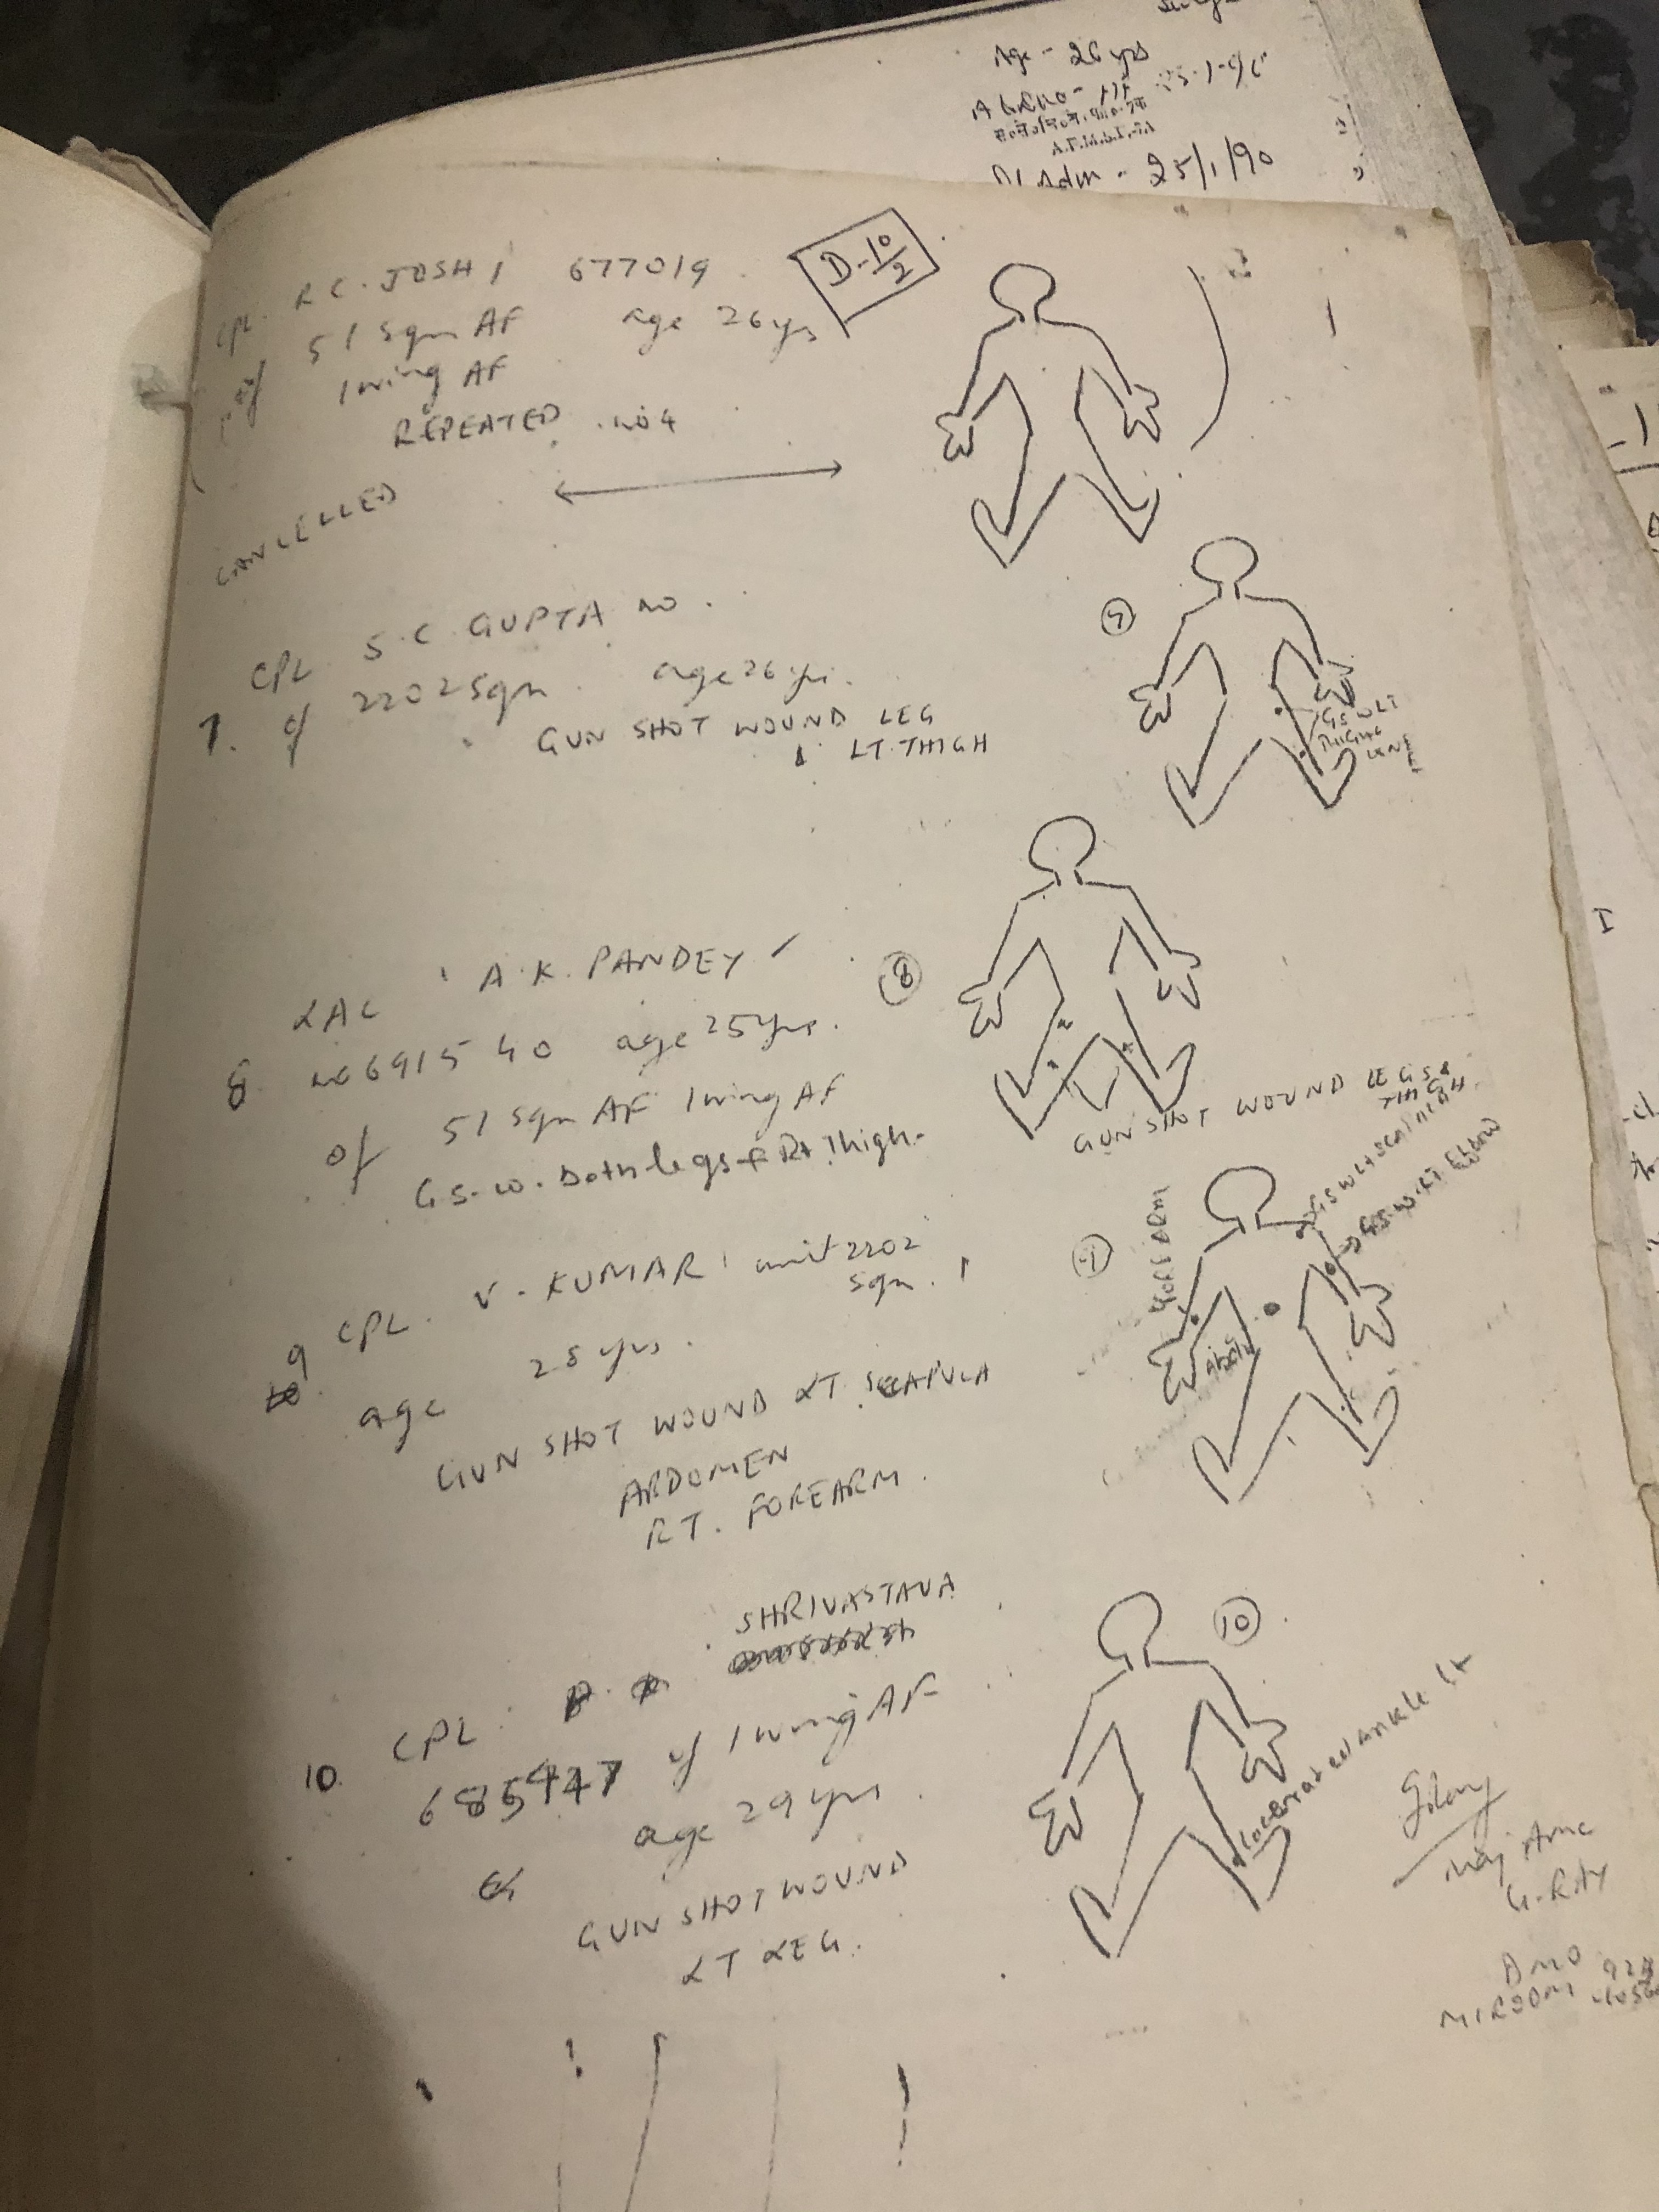 Age - 26 yrs
A.F.M.S.F.-7A
Adm - 25/1/90
D-10/2
CPL R C. JOSHI 677019
of 51 Sqn AF age 26 yrs
1 wing AF
REPEATED NO 4
CANCELLED
CPL S.C. GUPTA NO.
7. of 2202 Sqn age 26 yrs.
GUN SHOT WOUND LEG
LT. THIGH
7
GSW LT
LAC A.K. PANDEY
8. NO 691540 age 25 yrs.
of 51 Sqn AF 1 wing AF
G.S.W. Both legs & Rt. Thigh.
8
GUN SHOT WOUND LEGS &
THIGH
9 CPL. V. KUMAR unit 2202
Sqn.
age 28 yrs.
GUN SHOT WOUND LT. SCAPULA
ABDOMEN
RT. FOREARM.
9
FORE ARM
GSW Lt scapula
GSW Rt Elbow
Abdn
SHRIVASTAVA
10. CPL.
685447 of 1 wing AF
age 29 yrs.
GUN SHOT WOUND
LT LEG.
10
Lacerated ankle Lt
Maj AMC
G-RAY
DMO 92B